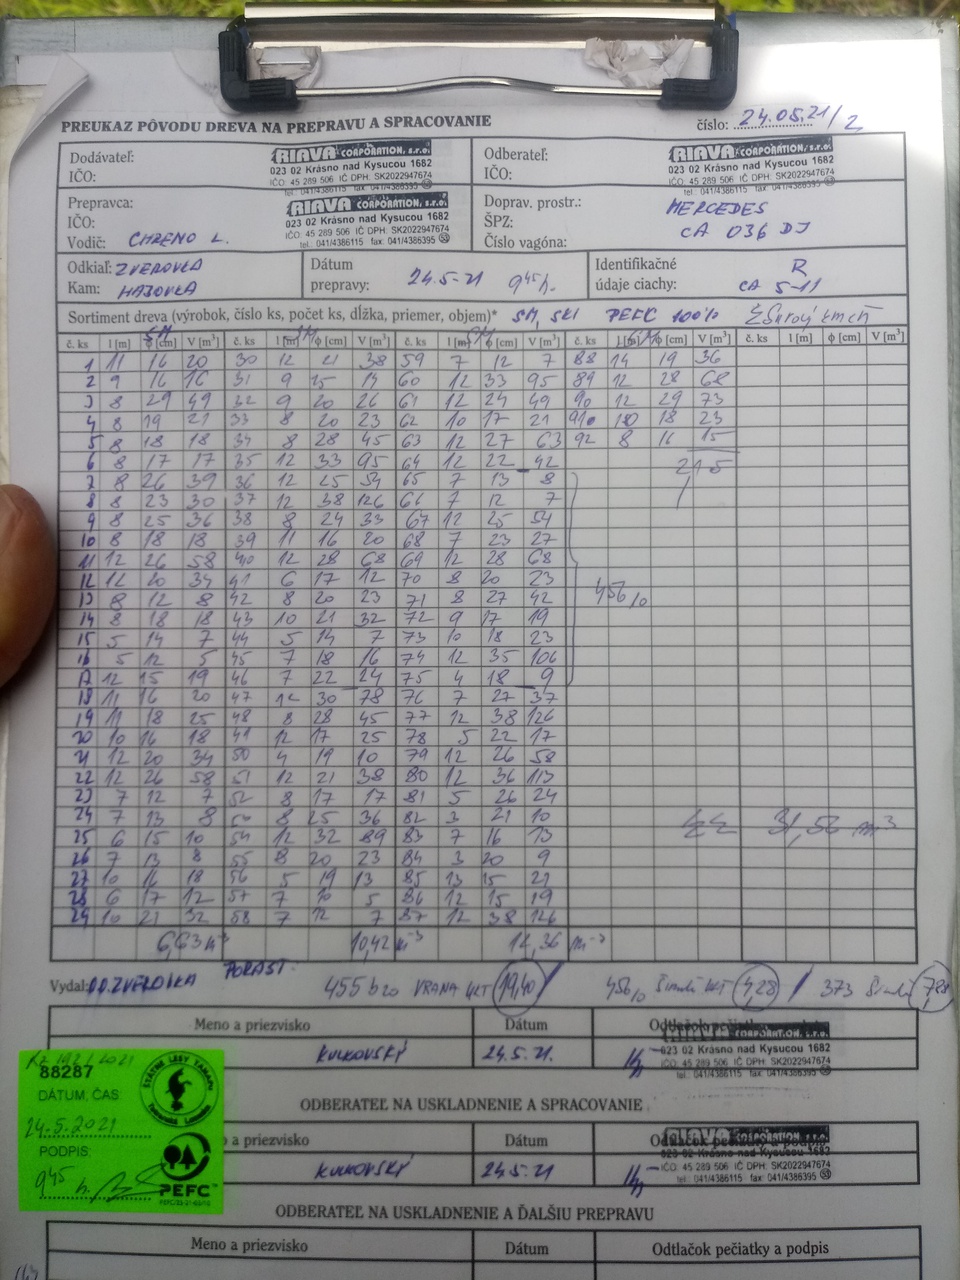 PREUKAZ PÔVODU DREVA NA PREPRAVU A SPRACOVANIE
číslo: 24.05.21/2
Dodávateľ:
IČO:
RIAVA CORPORATION, s.r.o.
023 02 Krásno nad Kysucou 1682
IČO: 45 289 506 IČ DPH: SK2022947674
tel.: 041/4386115 fax: 041/4386395
Odberateľ:
IČO:
RIAVA CORPORATION, s.r.o.
023 02 Krásno nad Kysucou 1682
IČO: 45 289 506 IČ DPH: SK2022947674
tel.: 041/4386115 fax: 041/4386395
Prepravca:
IČO:
Vodič: CHRENO L.
RIAVA CORPORATION, s.r.o.
023 02 Krásno nad Kysucou 1682
IČO: 45 289 506 IČ DPH: SK2022947674
tel.: 041/4386115 fax: 041/4386395
Doprav. prostr.: MERCEDES
ŠPZ: CA 036 DJ
Číslo vagóna:
Odkiaľ: ZVEROVKA
Kam: HABOVKA
Dátum
prepravy: 24.5-21 9⁴⁵h.
Identifikačné R
údaje ciachy: CA 5-11
Sortiment dreva (výrobok, číslo ks, počet ks, dĺžka, priemer, objem)* SM, SKI PEFC 100%
č. ks l [m] ϕ [cm] V [m³] č. ks l [m] ϕ [cm] V [m³] č. ks l [m] ϕ [cm] V [m³] č. ks l [m] ϕ [cm] V [m³] č. ks l [m] ϕ [cm] V [m³]
1 11 16 20 30 12 21 38 59 7 12 7 88 14 19 36
2 9 16 16 31 9 15 17 60 12 33 95 89 12 28 68
3 8 29 49 32 9 20 26 61 12 24 49 90 12 29 73
4 8 19 21 33 8 20 23 62 10 17 21 91 10 18 23
5 8 18 18 34 8 28 45 63 12 27 63 92 8 16 15
6 8 17 17 35 12 33 95 64 12 22 42 215
7 8 26 39 36 12 25 54 65 7 13 8
8 8 23 30 37 12 38 126 66 7 12 7
9 8 25 36 38 8 24 33 67 12 25 54
10 8 18 18 39 11 16 20 68 7 23 27
11 12 26 58 40 12 28 68 69 12 28 68
12 12 20 34 41 6 17 12 70 8 20 23
13 8 12 8 42 8 20 23 71 8 27 42 456/0
14 8 18 18 43 10 21 32 72 9 17 19
15 5 14 7 44 5 14 7 73 10 18 23
16 5 12 5 45 7 18 16 74 12 35 106
17 12 15 19 46 7 22 24 75 4 18 9
18 11 16 20 47 12 30 78 76 7 27 37
19 11 18 25 48 8 28 45 77 12 38 126
20 10 16 18 49 12 17 25 78 5 22 17
21 12 20 34 50 4 19 10 79 12 26 58
22 12 26 58 51 12 21 38 80 12 36 113
23 7 12 7 52 8 17 17 81 5 26 24
24 7 13 8 8 25 36 82 3 21 10 31,56 m³
25 6 15 10 54 12 32 89 83 7 16 13
26 7 13 8 55 8 20 23 84 3 20 9
27 10 16 18 56 5 19 13 85 13 15 21
28 6 17 12 57 7 10 5 86 12 15 19
29 10 21 32 58 7 12 7 87 12 38 126
6,63 m³ 10,42 m³ 12,36 m³
Vydal: PORAST:
455 b20 VRANA UKT 19,40 / 456/0 UKT 4,28 / 373
Meno a priezvisko Dátum Odtlačok pečiatky a podpis
KULKOVSKÝ 24.5.21.
RIAVA CORPORATION, s.r.o.
023 02 Krásno nad Kysucou 1682
IČO: 45 289 506 IČ DPH: SK2022947674
tel.: 041/4386115 fax: 041/4386395
ODBERATEĽ NA USKLADNENIE A SPRACOVANIE
o a priezvisko Dátum Odtlačok pečiatky a podpis
KULKOVSKÝ 24.5.21.
RIAVA CORPORATION, s.r.o.
023 02 Krásno nad Kysucou 1682
IČO: 45 289 506 IČ DPH: SK2022947674
tel.: 041/4386115 fax: 041/4386395
88287
DÁTUM, ČAS:
24.5.2021
PODPIS:
9⁴⁵ h.
ŠTÁTNE LESY TANAPU
PEFC
ODBERATEĽ NA USKLADNENIE A ĎALŠIU PREPRAVU
Meno a priezvisko Dátum Odtlačok pečiatky a podpis